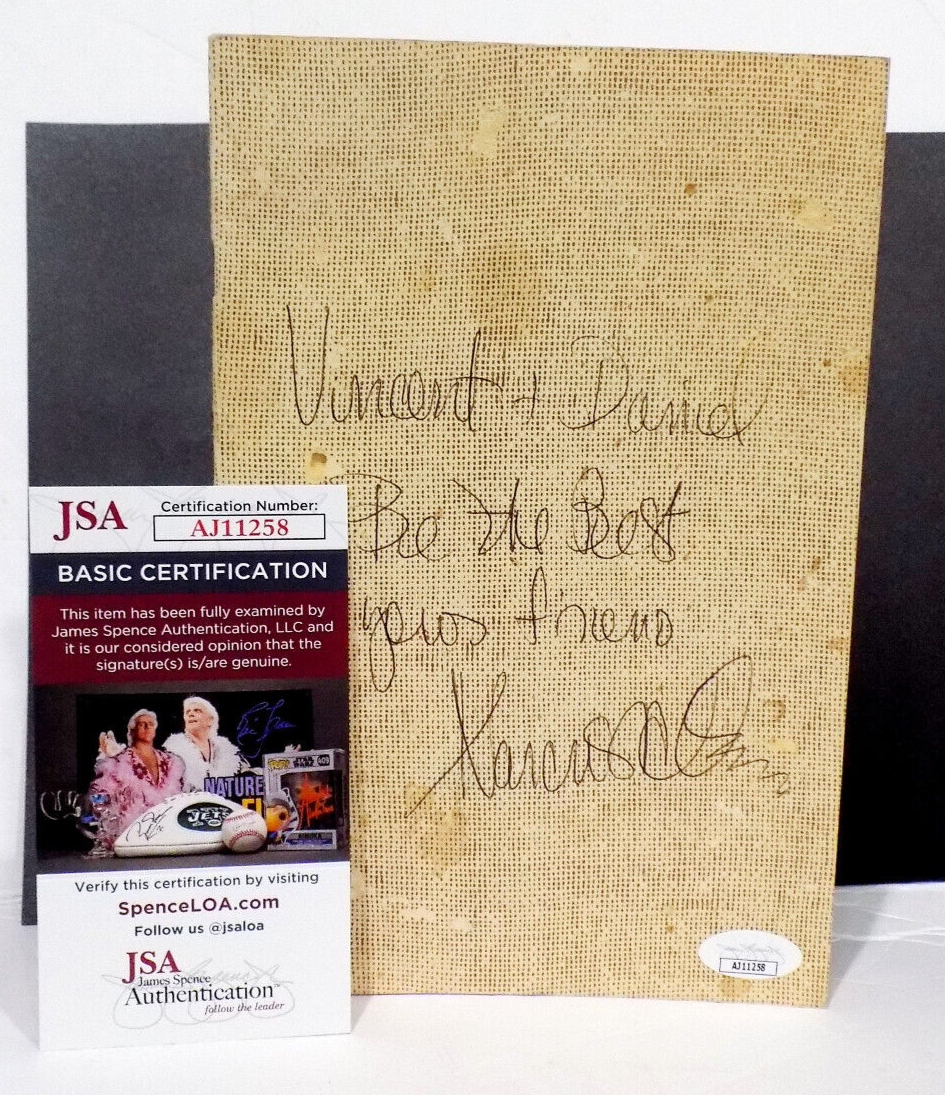 Vincent + Daniel
Be The Best
yours friend
JSA
Certification Number:
AJ11258
BASIC CERTIFICATION
This item has been fully examined by
James Spence Authentication, LLC and
it is our considered opinion that the
signature(s) is/are genuine.
NATURE
JETS
Verify this certification by visiting
SpenceLOA.com
Follow us @jsaloa
JSA
James Spence
Authentication™
follow the leader
AJ11258